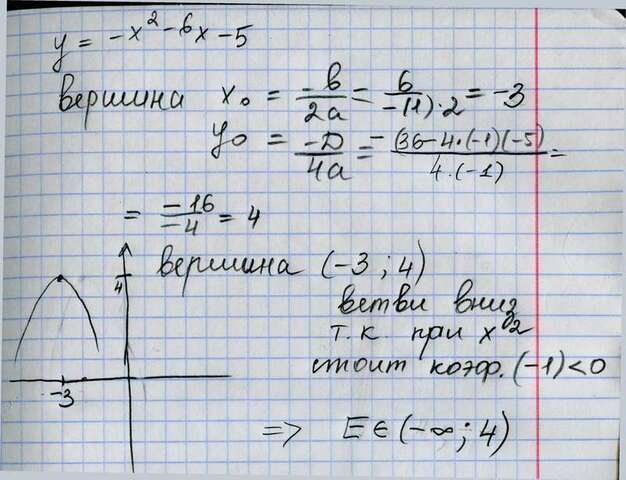 y = -x² - 6x - 5
вершина x₀ = -b/2a = 6/-(1)·2 = -3
y₀ = -D/4a = -(36-4·(-1)(-5)/4·(-1) =
= -16/-4 = 4
вершина (-3 ; 4)
4
ветви вниз
т.к. при x²
стоит коэф. (-1)<0
-3
=> E ∈ (-∞ ; 4)